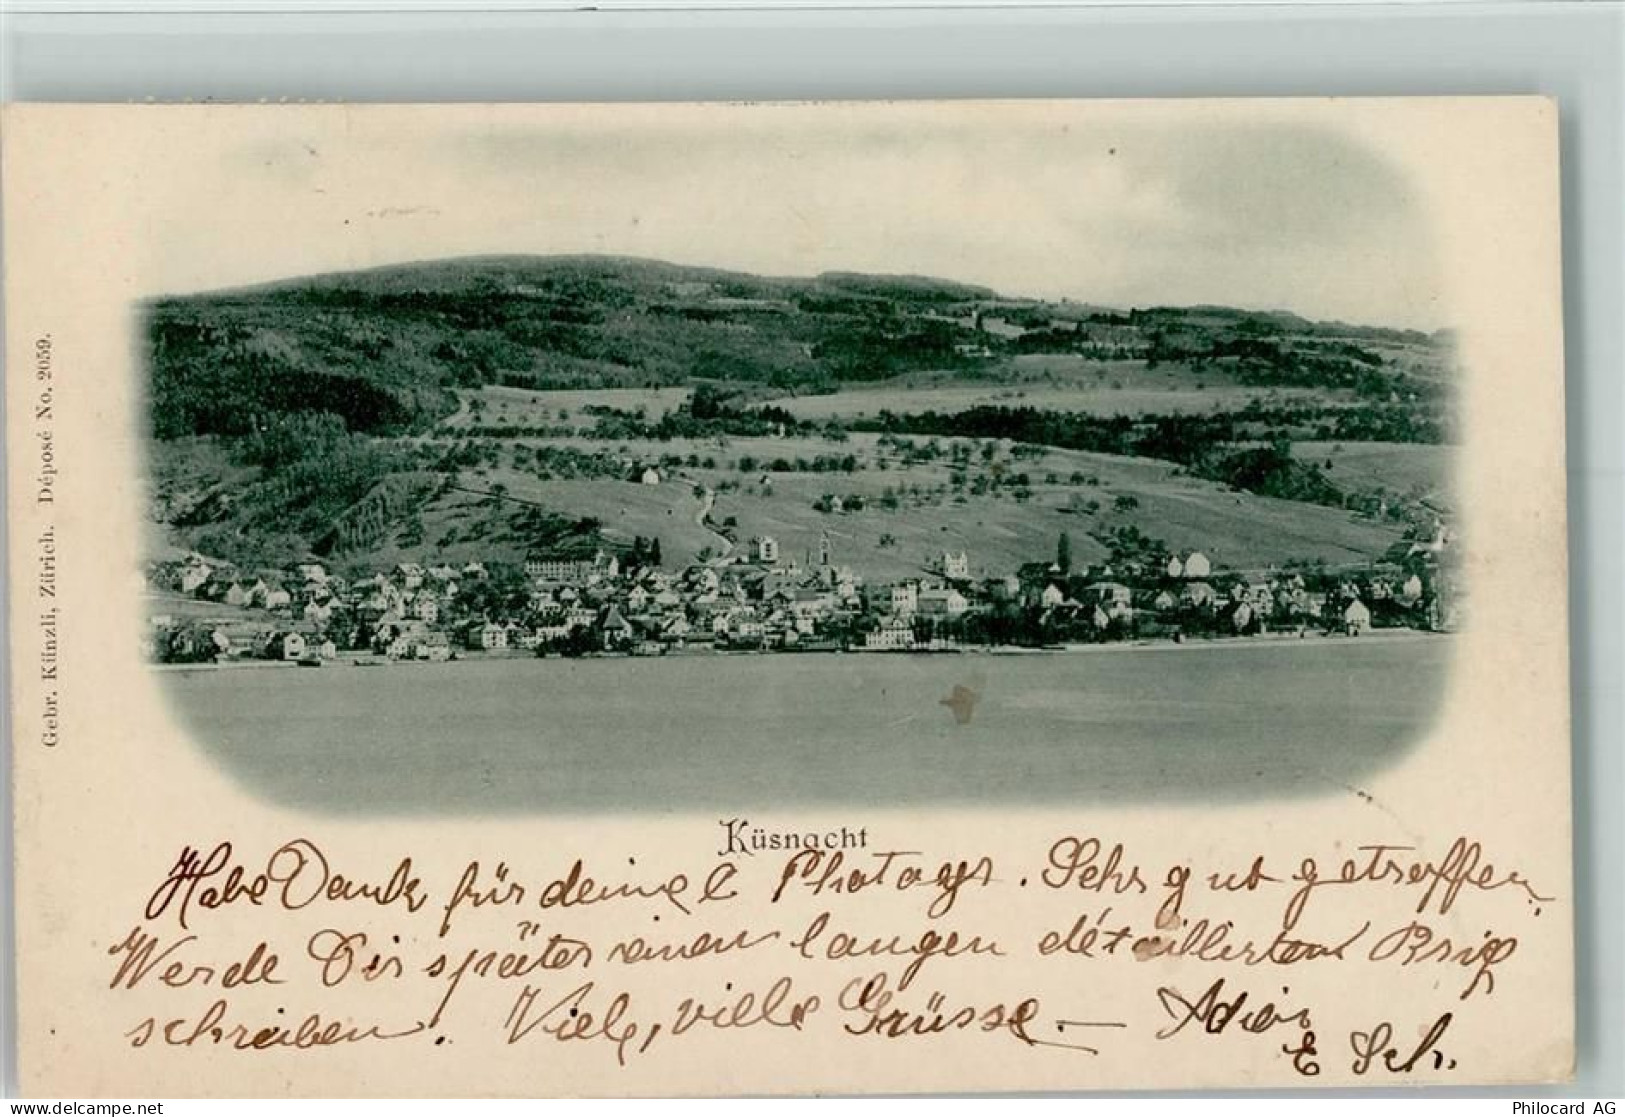 Gebr. Künzli, Zürich. Déposé No. 2059.
Küsnacht
Habe Dank für deine Photogr. Sehr gut getroffen,
Werde Dir später einen langen détaillierten Brief
schreiben. Viele, viele Grüsse — Adieu
E Sch.
www.delcampe.net
Philocard AG